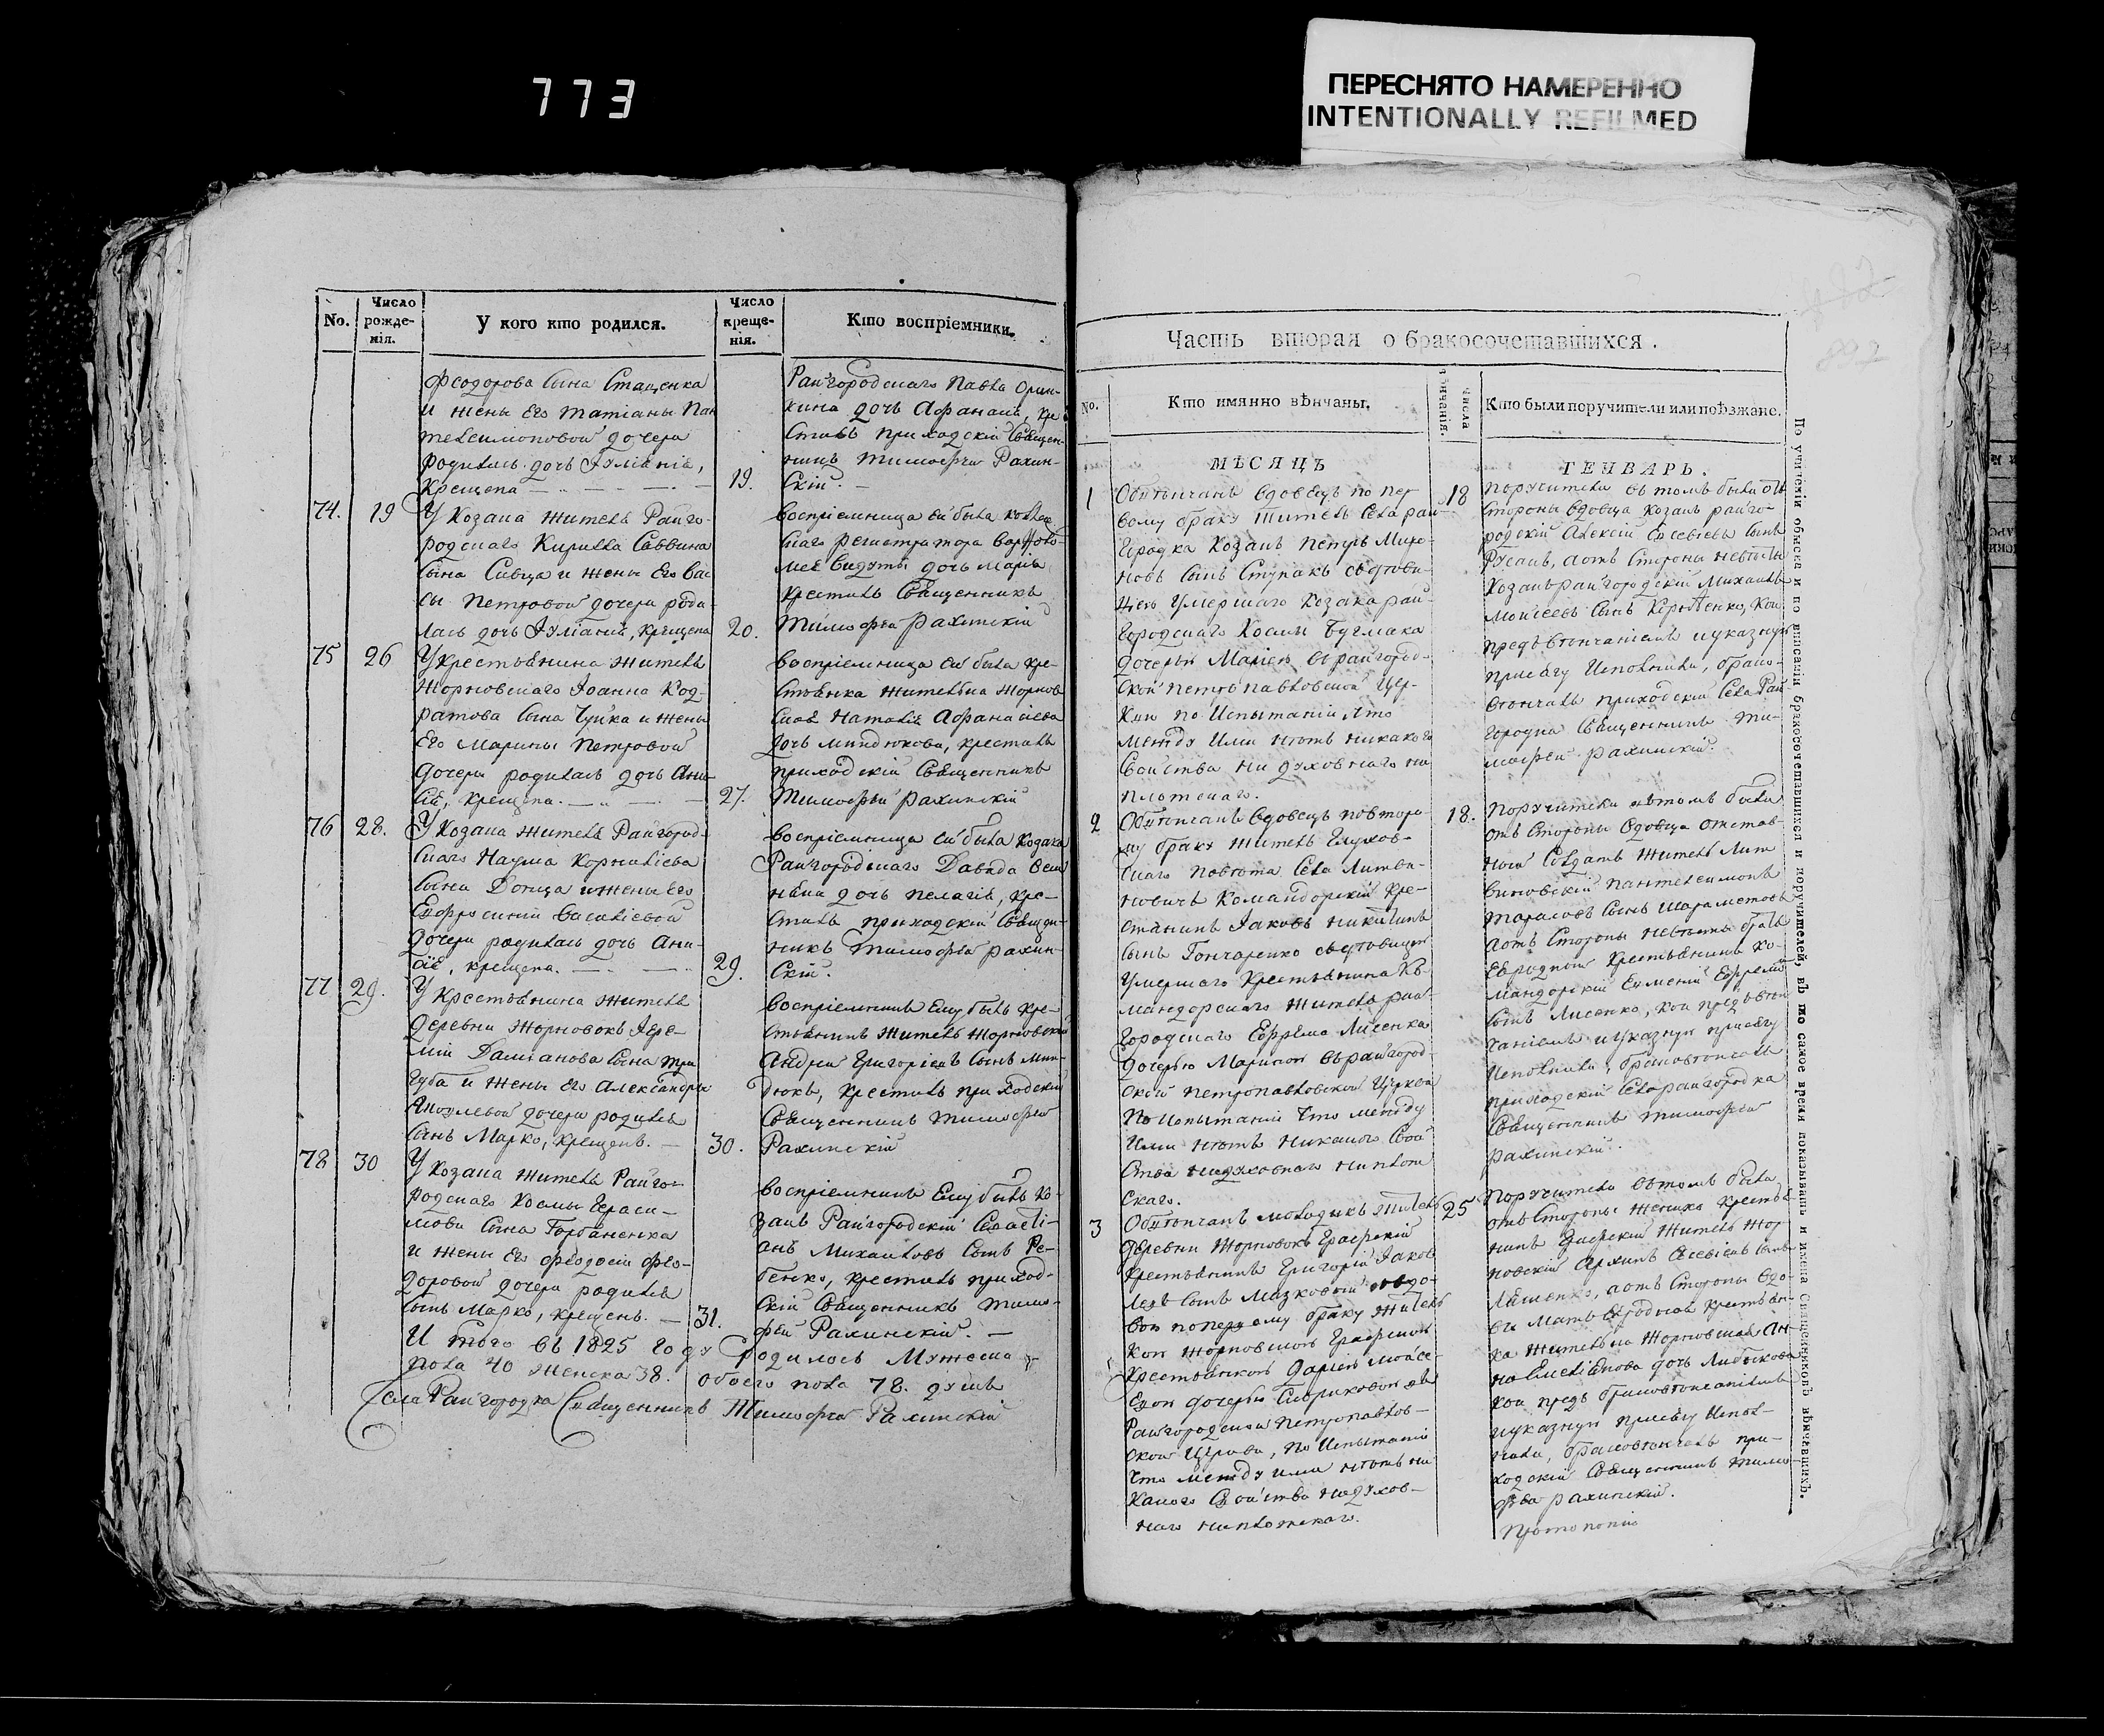 773
ПЕРЕСНЯТО НАМЕРЕННО
INTENTIONALLY REFILMED
No.
Число рожде-нія.
У кого кто родился.
Число креще-нія.
Кто воспріемники.
Феодорова сына Стаценка
и жены его Татіаны Пан
телеимоновой дочери
родилась дочь Іуліанія,
крещена
19.
Райгородскаго Павла
дочь Афанасія, кре
стилъ приходскій священ-
никъ Тимофей Рахин-
скій.
74.
19
У козака жителя Райго-
родскаго Кирилла Саввина
сына Сивца и жены его Вас
сы Петровой дочери роди-
лась дочь Іуліанія, крещена
20.
воспріемница ей была коллеж
скаго регистратора Варфоло-
мея дочь Марія
крестилъ священникъ
Тимофей Рахинскій
75
26
У крестьянина жителя
Жорновскаго Іоанна Код-
ратова сына Чуйка и жены
его Марины Петровой
дочери родилась дочь Ани
сія, крещена.
27.
воспріемница ей была кре-
стьянка жителька Жорнов
ская Наталія Афанасіева
дочь Миндюкова, крестилъ
приходскій священникъ
Тимофей Рахинскій
76
28.
У козака жителя Райгород-
скаго Наума Корниліева
сына Донца и жены его
Евфросиніи Василіевой
дочери родилась дочь Ани-
сія, крещена.
29.
воспріемница ей была козака
Райгородскаго Давида
дочь Пелагія, кре-
стилъ приходскій священ-
никъ Тимофей Рахин-
скій.
77
29.
У крестьянина жителя
деревни Жорновокъ Іере-
міи Даміанова сына Три
губа и жены его Александры
дочери родился
сынъ Марко, крещенъ.
30.
воспріемникъ ему былъ кре-
стьянинъ житель Жорновскій
Андрей Григоріевъ сынъ Мин-
дюкъ, крестилъ приходскій
священникъ Тимофей
Рахинскій
78
30
У козака жителя Райго-
родскаго Космы Гераси-
мова сына Горбаненка
и жены его Феодосіи Фео-
доровой дочери родился
сынъ Марко, крещенъ.
31.
воспріемникъ ему былъ ко-
закъ Райгородскій Севасті-
анъ Михайловъ сынъ Ре-
бенко, крестилъ приход-
скій священникъ Тимо-
фей Рахинскій.
И того въ 1825 году родилось мужеска
пола 40 женска 38. обоего пола 78. душъ
Села Райгородка Священникъ Тимофей Рахинскій
Часть вторая о бракосочетавшихся.
No.
Кто имянно вѣнчаны.
Числа вѣнчанія.
Кто были поручители или поѣзжане.
МѢСЯЦЪ
ГЕНВАРЬ.
1
Обвѣнчанъ вдовецъ по пер
вому браку житель села Рай
городка козакъ Петръ Миро-
новъ сынъ Ступакъ съ дѣви-
цею умершаго козака рай-
городскаго Космы Бугмака
дочерью Маріею въ райгород-
ской Петропавловской цер-
кви по испытаніи что
между ими нѣтъ никакого
свойства ни духовнаго ни
плотскаго.
18
Поручители въ томъ были отъ
стороны вдовца козакъ райго-
родскій Алексій Евсевіевъ сынъ
Русакъ, а отъ стороны невѣсты
козакъ райгородскій Михаилъ
Моисеевъ сынъ кои
предъ вѣнчаніемъ и указную
присягу исполнили, брако-
вѣнчалъ приходскій села Рай-
городка священникъ Ти-
мофей Рахинскій.
2
Обвѣнчанъ вдовецъ по второ
му браку житель Глухов-
скаго повѣта села Литви-
новичъ командорскій кре-
стянинъ Іаковъ Никитинъ
сынъ Гончаренко съ дѣвицею
умершаго крестьянина ко-
мандорскаго жителя рай-
городскаго Ефрема Лисенка
дочерью Мариною въ райгород-
ской Петропавловской церкви
по испытаніи что между
ими нѣтъ никакого свой
ства ни духовнаго ни плот
скаго.
18.
Поручители въ томъ были
отъ стороны вдовца отстав-
ный солдатъ житель Лит
виновскій Пантелеимонъ
Тарасовъ сынъ Шараметовъ
а отъ стороны невѣсты братъ
ея родной крестьянинъ ко-
мандорскій Евменій Ефремовъ
сынъ Лисенко, кои предъ вѣн
чаніемъ и указную присягу
исполнили, браковѣнчалъ
приходскій села райгородка
священникъ Тимофей
Рахинскій.
3
Обвѣнчанъ молодикъ житель
деревни Жорновокъ Графскій
крестьянинъ Григорій Іаков
левъ сынъ Мизковый со вдо-
вою по первому браку житель
кою Жорновскою Графскою
крестьянкою Даріею Моисе-
евою дочерью въ
Райгородской Петропавлов-
ской церкви, по испытаніи
что между ими нѣтъ ни
какого свойства ни духов-
наго ни плотскаго.
25
Поручители въ томъ были
отъ стороны жениха крестья
нинъ Графскій житель Жор
новскій Архипъ сынъ
Ляшенко, а отъ стороны вдо-
вы мать ея родная крестьян-
ка жителька Жорновская Ан-
на дочь
кои предъ браковѣнчаніемъ
и указную присягу испол-
нили, браковѣнчалъ при-
ходскій священникъ Тимо
фей Рахинскій.
По учиненіи обыска и по вписаніи бракосочетавшихся и поручителей, въ то самое время показывать и имена Священниковъ вѣнчавшихъ.